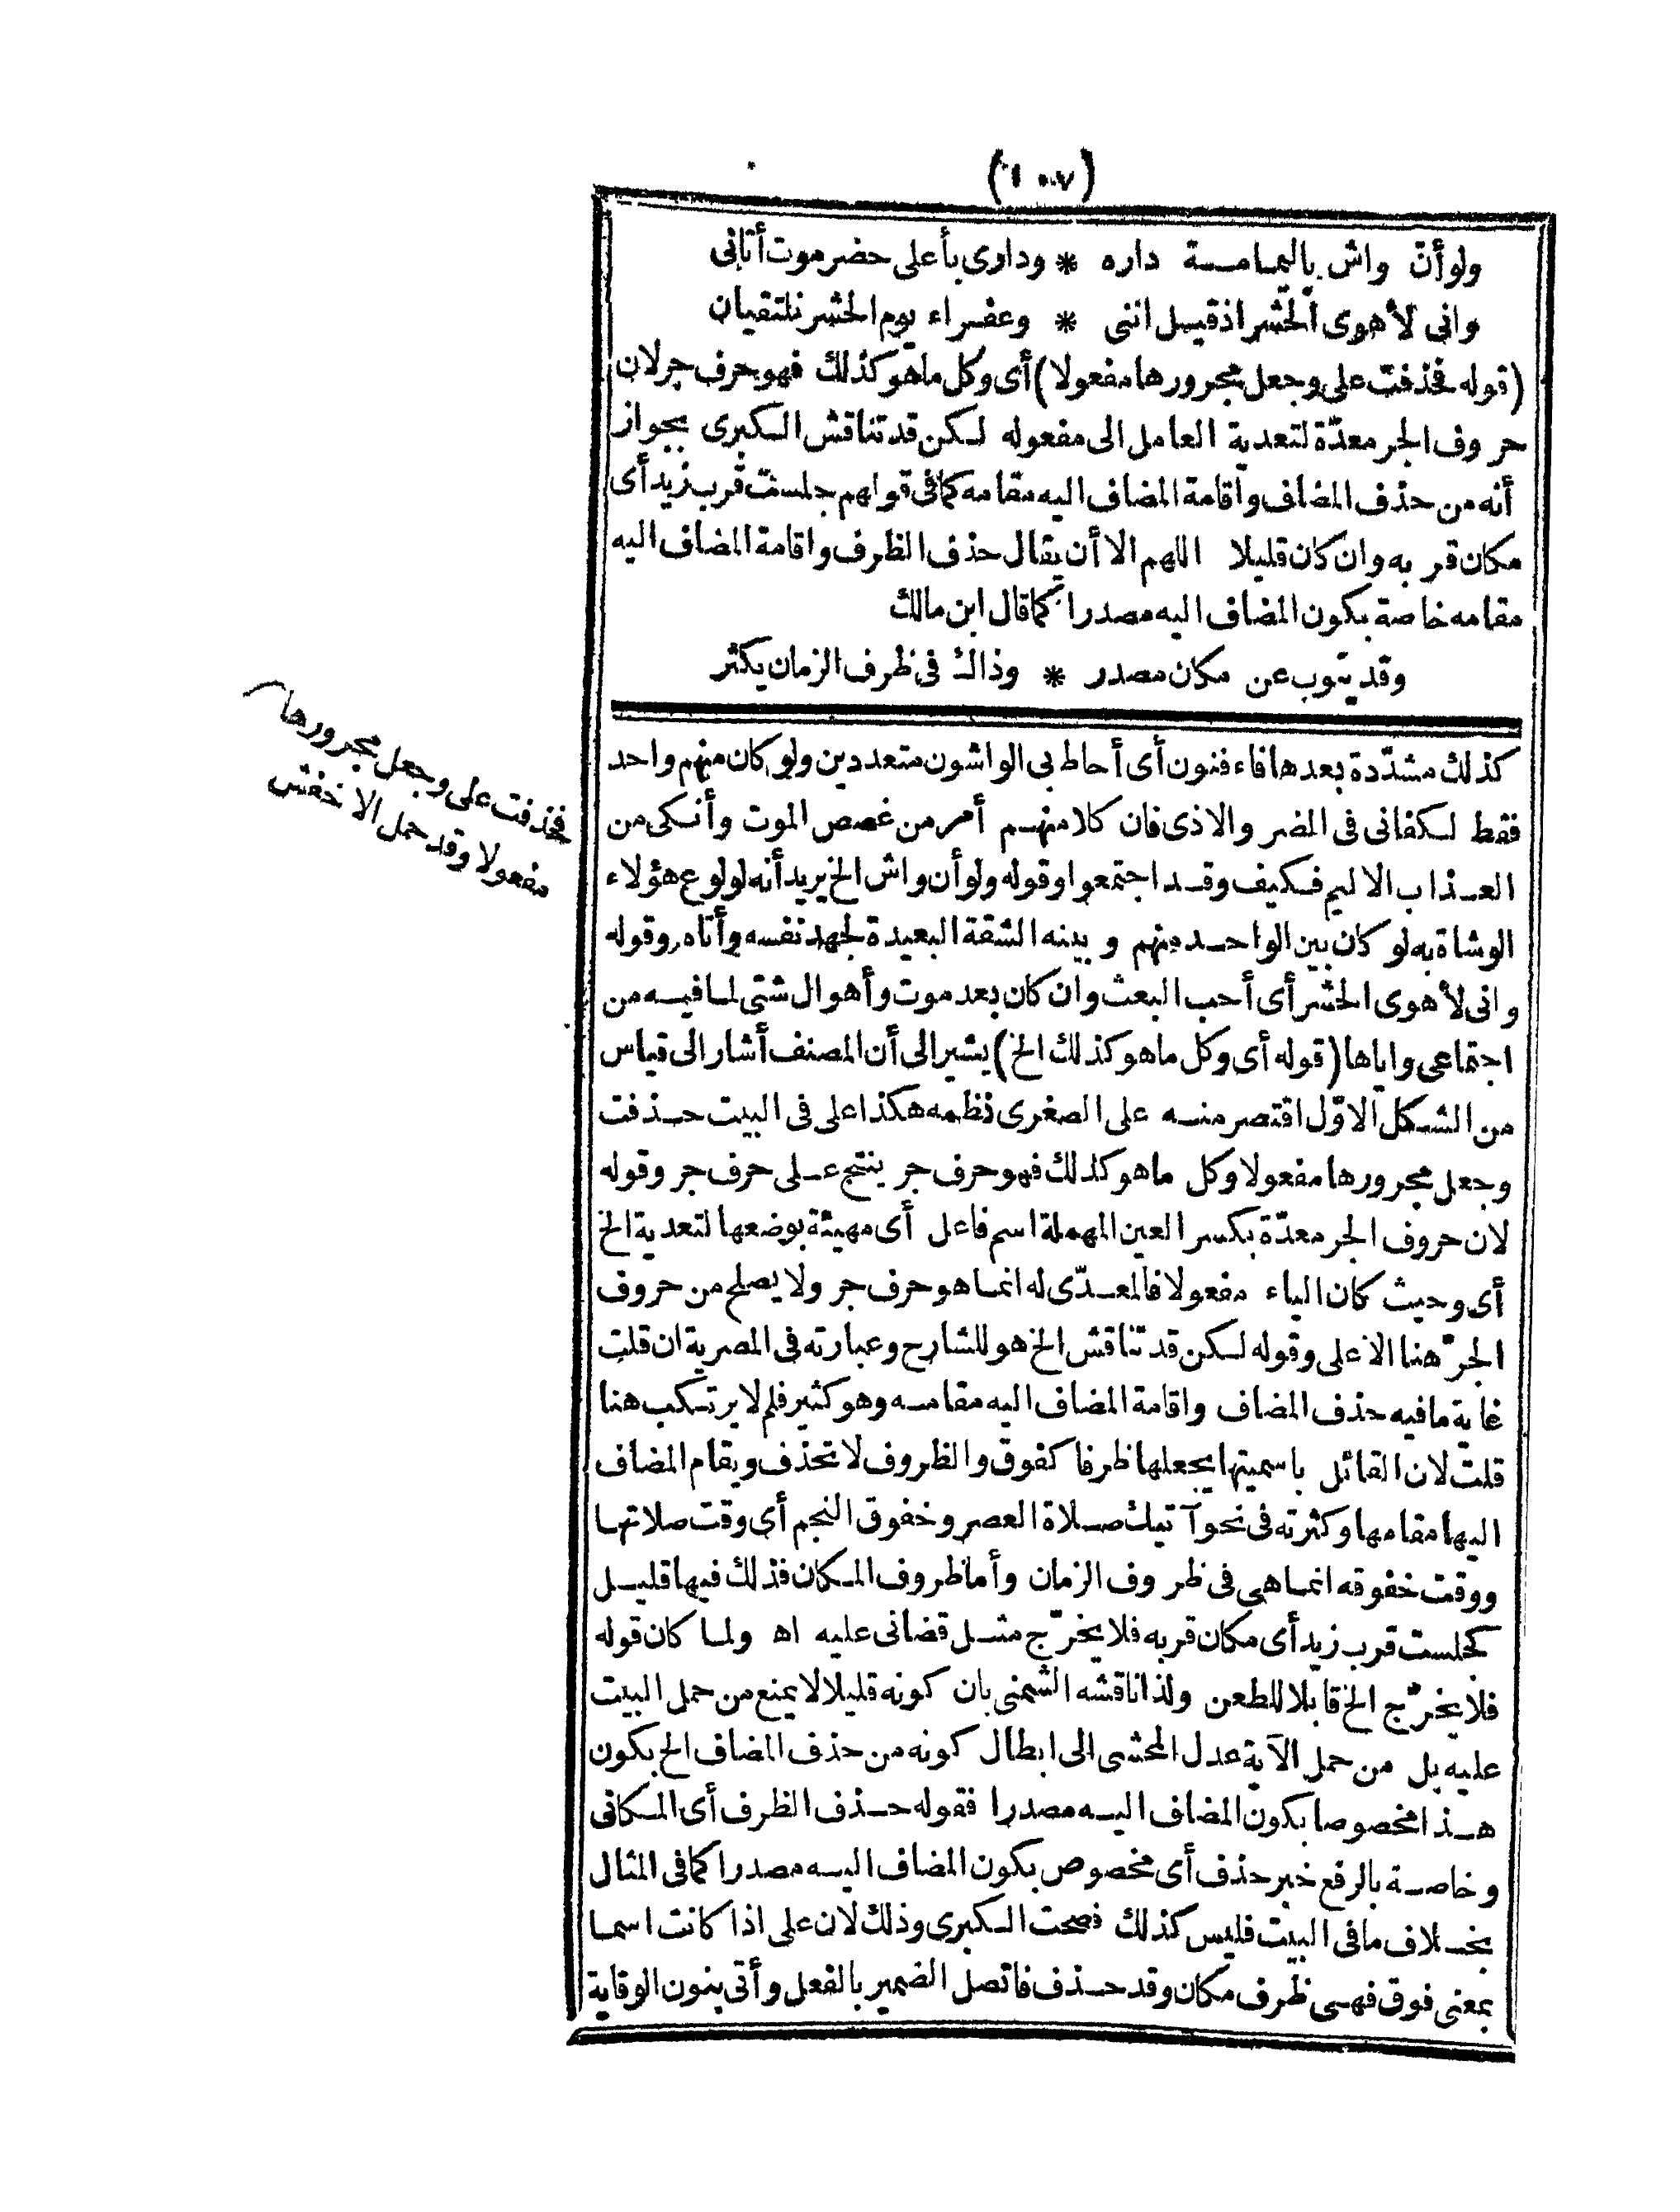 (١٠٠٧)
ولو أنّ واش باليمامـة داره * ودارى بأعلى حضرموت أتانى
وانى لأهوى الحشر اذ قيـل اننى * وعفـراء يوم الحشر نلتقيان
(قوله فحذفت على وجعل مجرورها مفعولا) أى وكل ما هو كذلك فهو حرف جر لان
حروف الجر معدّة لتعدية العامل الى مفعوله لـكن قد تناقش الـكبرى بجواز
أنه من حذف المضاف واقامة المضاف اليه مقامه كما فى قولهم جلست قرب زيد أى
مكان قربه وان كان قليلا اللهم الا أن يقال حذف الظرف واقامة المضاف اليه
مقامه خاصة بكون المضاف اليه مصدرا كما قال ابن مالك
وقد ينوب عن مكان مصدر * وذاك فى ظرف الزمان يكثر
فحذفت على وجعل مجرورها
مفعولا وقد حمل الاخفش
كذلك مشدّدة بعدها فاء فنون أى أحاط بى الواشون متعددين ولو كان منهم واحد
فقط لـكفانى فى الضر والاذى فان كلا منهـم أمر من غصص الموت وأنـكى من
العـذاب الاليم فـكيف وقـد اجتمعوا وقوله ولو أن واش الخ يريد أنه لولوع هؤلاء
الوشاة به لو كان بين الواحـد منهم وبينه الشقة البعيدة لجهد نفسه وأتاه وقوله
وانى لأهوى الحشر أى أحب البعث وان كان بعد موت وأهوال شتى لما فيـه من
اجتماعى واياها (قوله أى وكل ما هو كذلك الخ) يشير الى أن المصنف أشار الى قياس
من الشـكل الاوّل اقتصر منـه على الصغرى نظمه هكذا على فى البيت حـذفت
وجعل مجرورها مفعولا وكل ما هو كذلك فهو حرف جر ينتج عـلى حرف جر وقوله
لان حروف الجر معدّة بكسر العين المهملة اسم فاعل أى مهيئة بوضعها لتعدية الخ
أى وحيث كان الياء مفعولا فالمعـدّى له انمـا هو حرف جر ولا يصلح من حروف
الجرّ هنا الا على وقوله لـكن قد تناقش الخ هو للشارح وعبارته فى المصرية ان قلت
غاية ما فيه حذف المضاف واقامة المضاف اليه مقامـه وهو كثير فلم لا يرتـكب هنا
قلت لان القائل باسميتها يجعلها ظرفا كفوق والظروف لا تحذف ويقام المضاف
اليها مقامها وكثرته فى نحو آتيك صـلاة العصر وخفوق النجم أى وقت صلاتهـا
ووقت خفوقه انمـا هى فى ظروف الزمان وأما ظروف المـكان فذلك فيها قليـل
كجلست قرب زيد أى مكان قربه فلا يخرّج مثـل قضانى عليه اهـ ولمـا كان قوله
فلا يخرّج الخ قابلا للطعن ولذا ناقشه الشمنى بان كونه قليلا لا يمنع من حمل البيت
عليه بل من حمل الآية عدل المحشى الى ابطال كونه من حذف المضاف الخ بكون
هـذا مخصوصا بكون المضاف اليـه مصدرا فقوله حـذف الظرف أى المـكانى
وخاصـة بالرفع خبر حذف أى مخصوص بكون المضاف اليـه مصدرا كما فى المثال
بخـلاف ما فى البيت فليس كذلك فصحت الـكبرى وذلك لان على اذا كانت اسمـا
بمعنى فوق فهـى ظرف مكان وقد حـذف فاتصل الضمير بالفعل وأتى بنون الوقاية